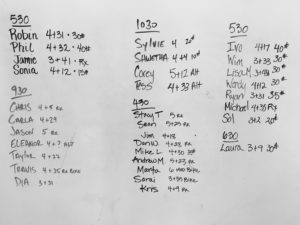 530
Robin 4+31 · 30#
Phil 4+32 · 40#
Jamie 3+41 · Rx
Sonia 4+12 · 15#
930
CHRIS 4+5 Rx
CARLA 4+29
JASON 5 Rx
ELEANOR 4+7 Alt
Taylor 4+22
TRAVIS 4+25 Rx Bike
DIA 3+31
1030
SYLVIE 4 20#
SHWETHA 4+4 10#
Corey 5+12 Alt
Tess 4+33 Alt
430
Stacy T 5 Rx
Sean 5+25 Rx
Jim 4+18
Dani D 4+28 Rx
Mike L 4+30
Andrew M 5+23 Rx
Marta
Sarai 3+35 Bike
Kris 4+9 Rx
530
Ivo 4+17 40#
Wim 3+33 30#
Lisa M 30#
Wendy 4+12 30#
Ryan 3+31 35#
Michael 4+35 Rx
Sol 3+2 20#
630
Laura 3+9 20#